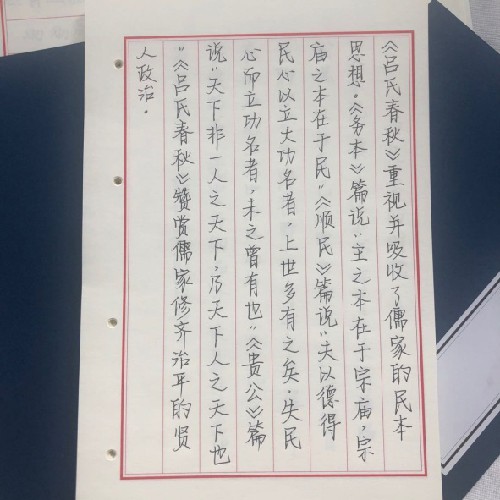 《吕氏春秋》重视并吸收了儒家的民本
思想。《务本》篇说"主之本在于宗庙,宗
庙之本在于民"《顺民》篇说"夫以德得
民心以立大功名者,上世多有之矣。失民
心而立功名者,未之曾有也"《贵公》篇
说"天下非一人之天下,乃天下人之天下也
"《吕氏春秋》赞赏儒家修齐治平的贤
人政治。